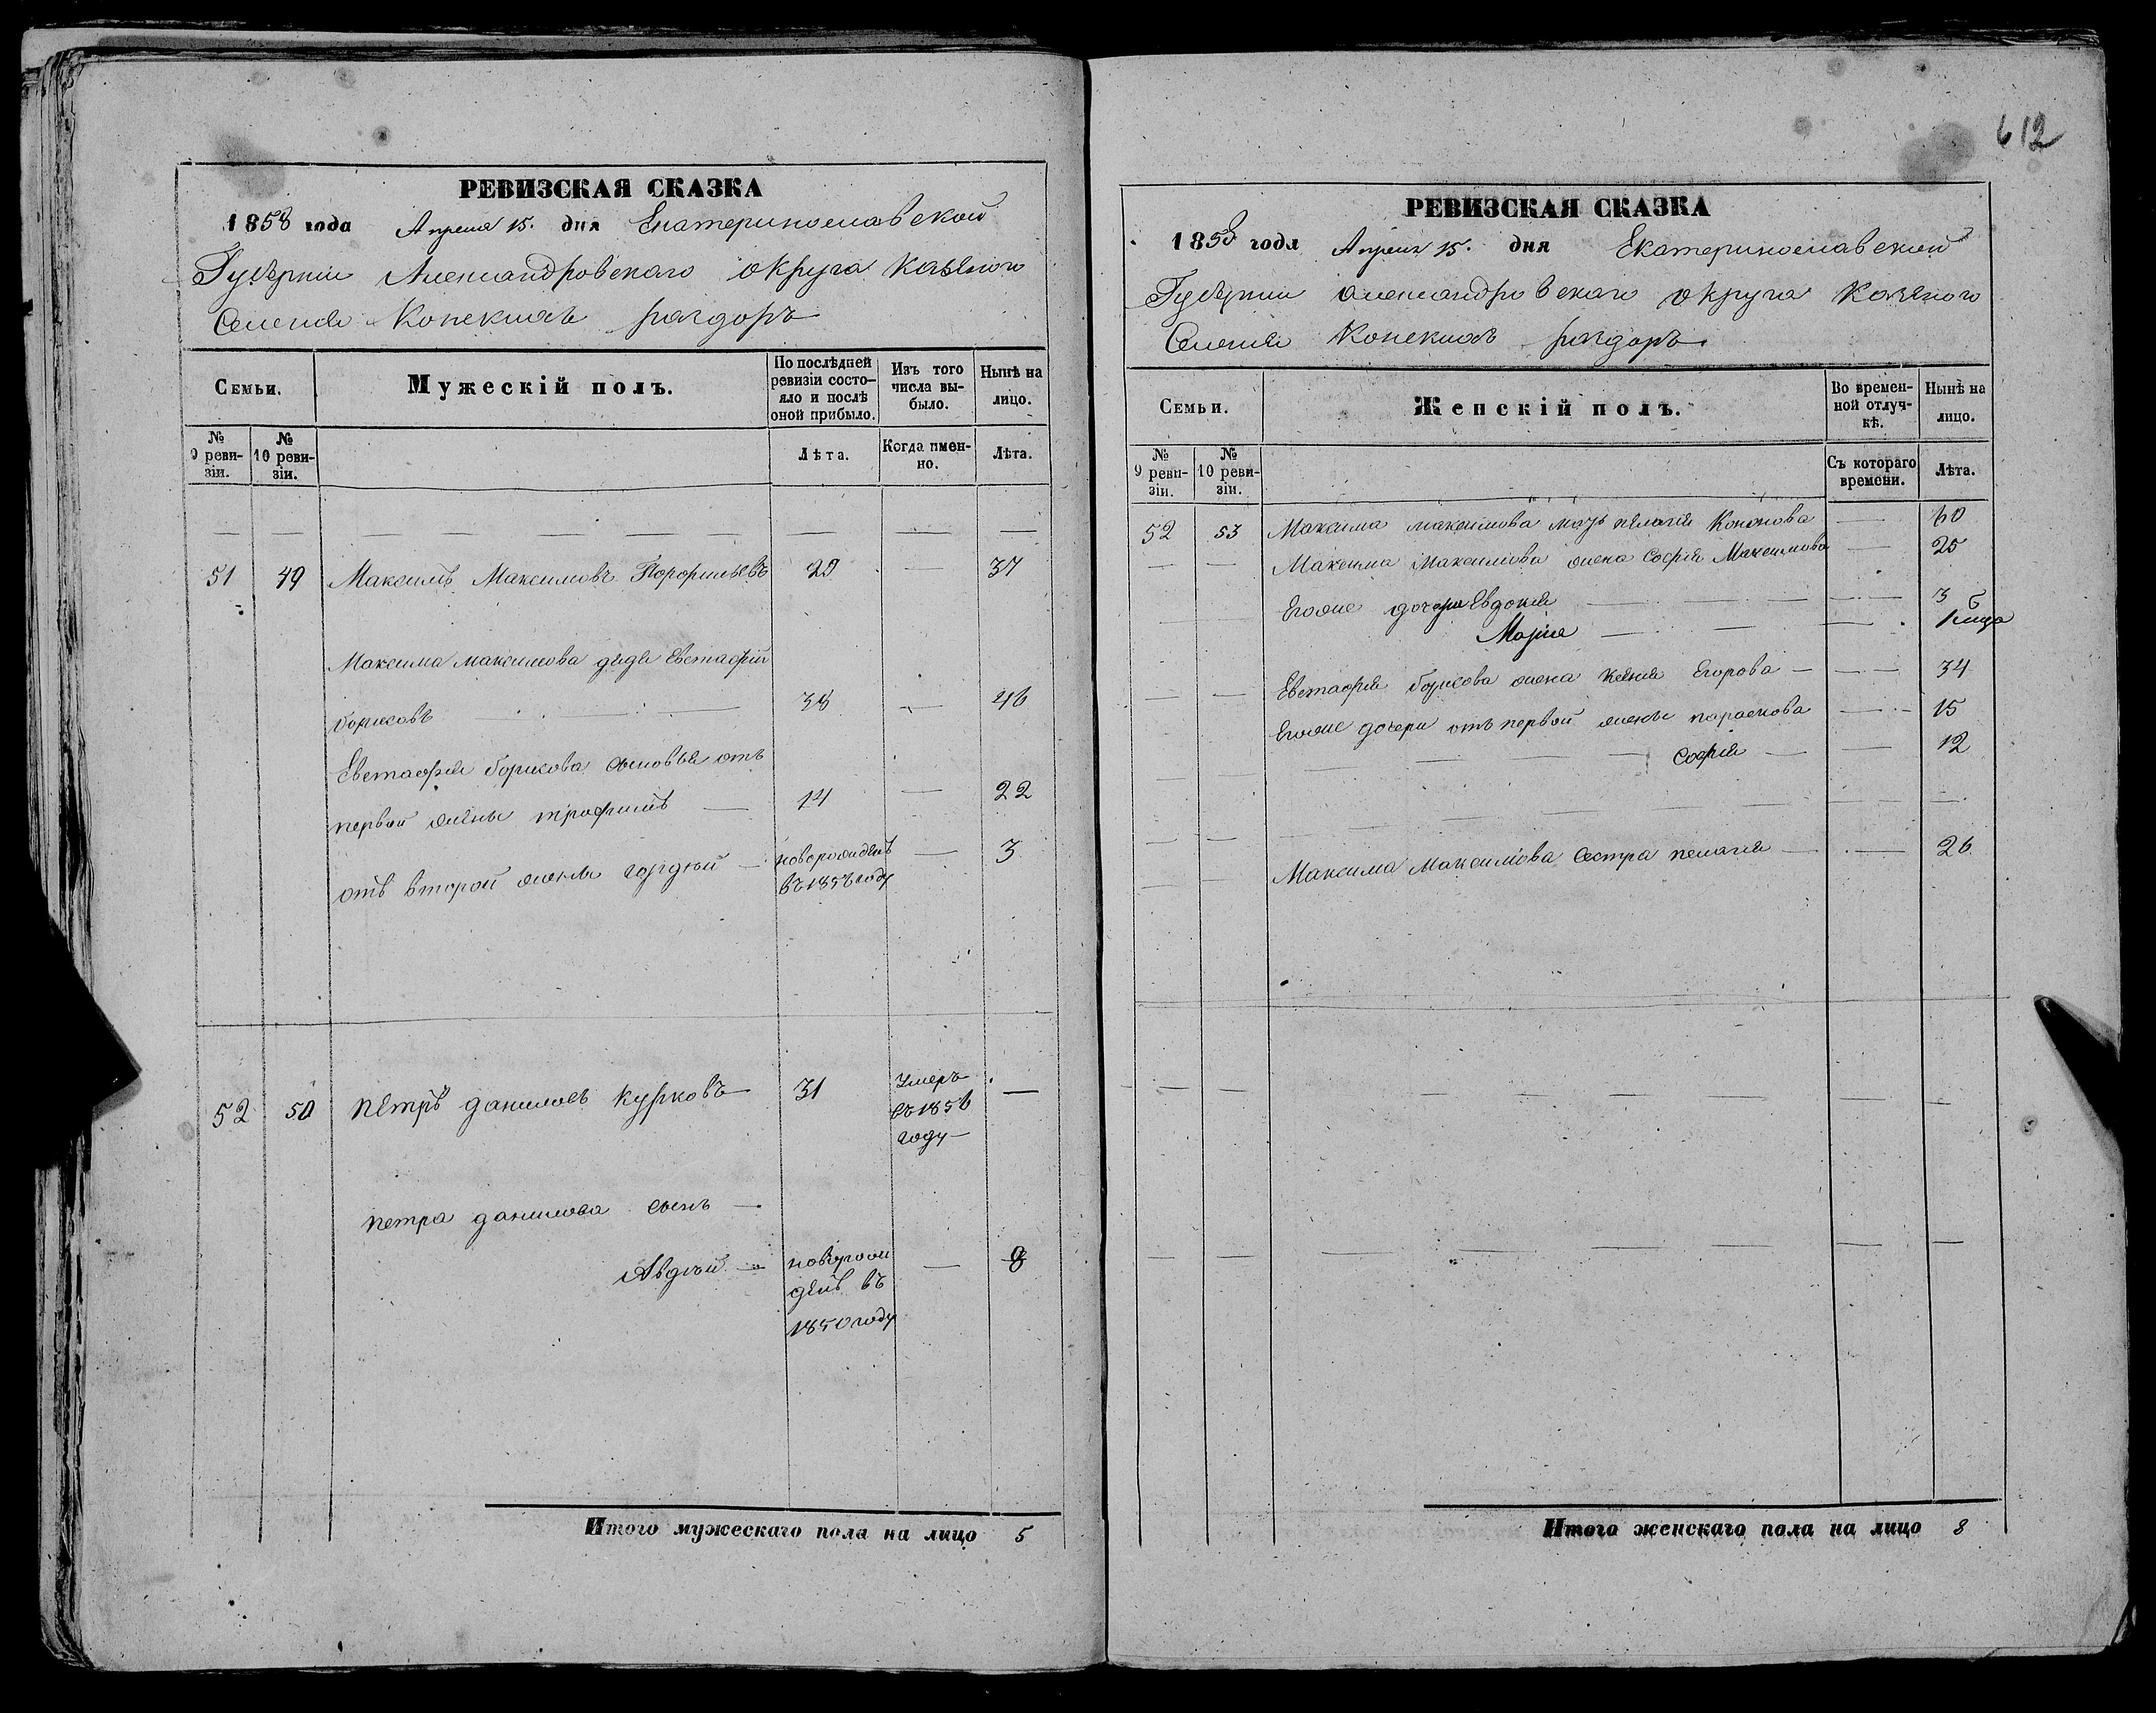 РЕВИЗСКАЯ СКАЗКА
1858 года Апреля 15. дня Екатеринославской
Губерніи Александровскаго округа казеного
Селенія Конскихъ раздоръ
Семьи.
Мужескій полъ.
По послѣдней ревизіи состо-
яло и послѣ оной прибыло.
Изъ того числа вы-
было.
Нынѣ на лицо.
№ 9 реви-
зіи.
№ 10 реви-
зіи.
Лѣта.
Когда имен-
но.
Лѣта.
51 49 Максимъ Максимовъ 29 — 37
Максима Максимова дядя Евстафій
борисовъ 38 — 46
Евстафія борисова сыновья отъ
первой жены трофимъ — 14 — 22
отъ второй жены гордѣй — новорожденъ — 3
въ 185 году
52 50 петръ даниловъ курковъ 31 Умеръ —
въ 1856
году
петра данилова сынъ —
Авдѣй — новорож — 8
денъ въ
1850 году
Итого мужескаго пола на лицо 5
612
РЕВИЗСКАЯ СКАЗКА
1858 года Апреля 15. дня Екатеринославской
Губерніи Александровскаго округа Казеного
Селенія Конскихъ раздоръ
Семьи.
Женскій полъ.
Во времен-
ной отлуч-
кѣ.
Нынѣ на лицо.
№ 9 реви-
зіи.
№ 10 реви-
зіи.
Съ котораго времени.
Лѣта.
52 53 Максима максимова мать пелагія Кононова — 60
— — Максима Максимова жена Софія Максимова — 25
Егоже дочери Евдокія — 3
Марія — 1
Евстафія борисова жена Ксенія Егорова — 34
Егоже дочери отъ первой жены параскова — 15
Софія — 12
Максима Максимова Сестра пелагія — 26
Итого женскаго пола на лицо 8